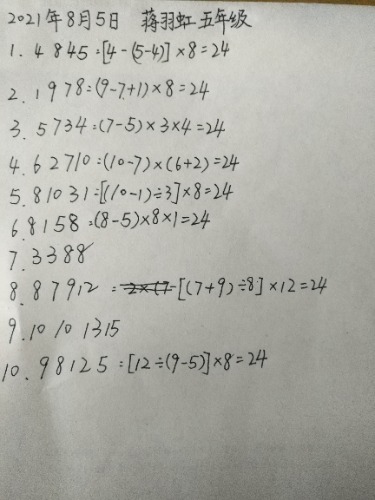 2021年8月5日 蒋羽虹 五年级
1. 4 8 4 5 = [4-(5-4)]×8=24
2. 1 9 7 8 = (9-7+1)×8=24
3. 5 7 3 4 = (7-5)×3×4=24
4. 6 2 7 10 = (10-7)×(6+2)=24
5. 8 10 3 1 = [(10-1)÷3]×8=24
6. 8 1 5 8 = (8-5)×8×1=24
7. 3 3 8 8
8. 8 7 9 12 = 2×(7 [(7+9)÷8]×12=24
9. 10 10 13 15
10. 9 8 12 5 = [12÷(9-5)]×8=24